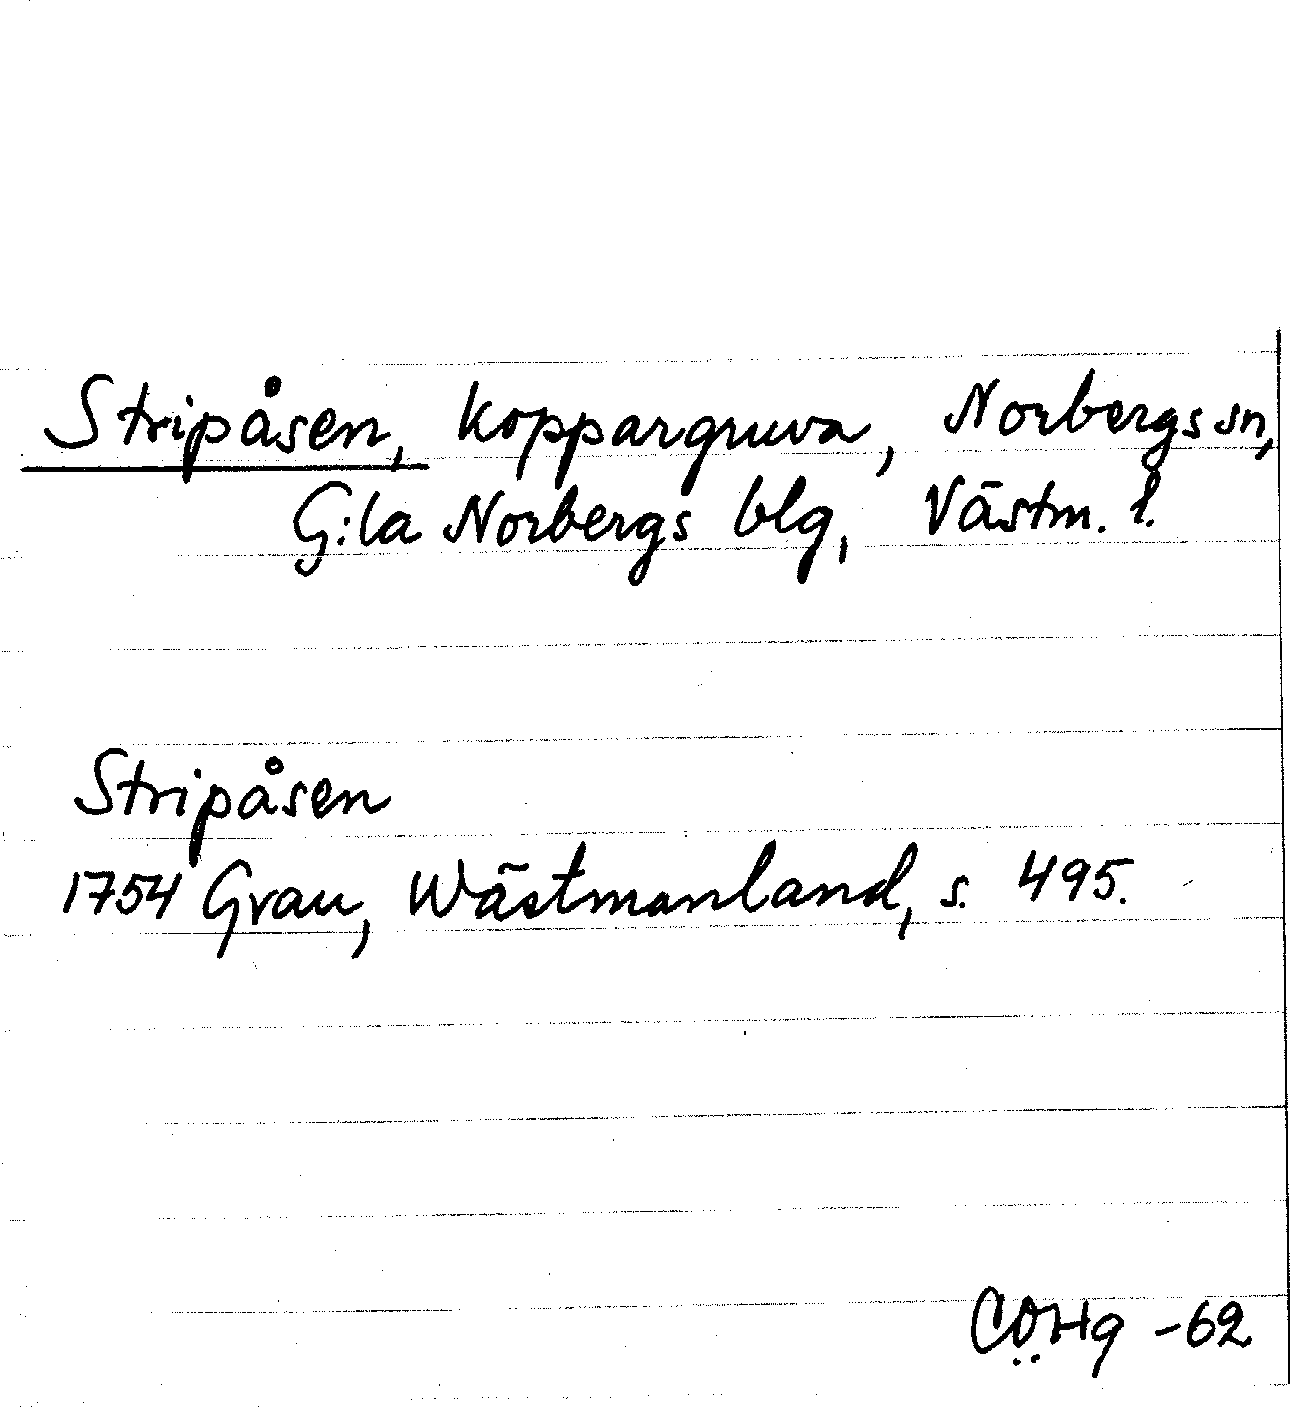 Stripåsen, koppargruva, Norbergs sn,
G:la Norbergs blg, Västm. l.
Stripåsen
1754 Grau, Wästmanland, s. 495.
CÖHg -62